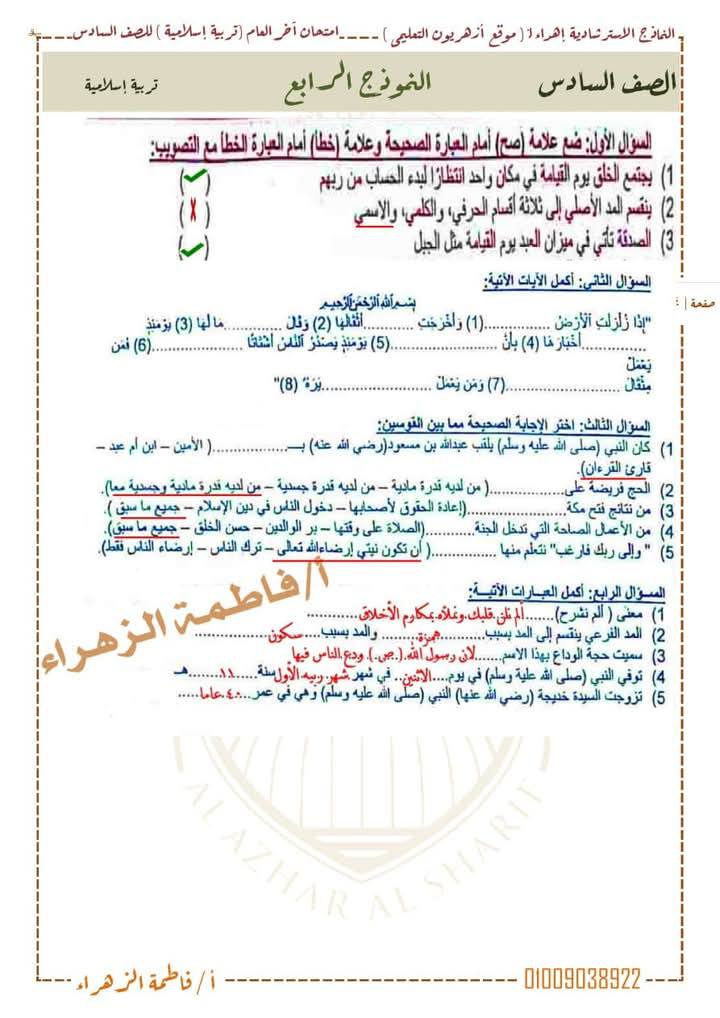 النماذج الاسترشادية إهداء أ/ ( موقع أزهريون التعليمى ) ــــ امتحان آخر العام ( تربية إسلامية ) للصف السادس
الصف السادس النموذج الرابع تربية إسلامية
السؤال الأول: ضع علامة (صح) أمام العبارة الصحيحة وعلامة (خطأ) أمام العبارة الخطأ مع التصويب:
1) يجتمع الخلق يوم القيامة في مكان واحد انتظارًا لبدء الحساب من ربهم (✓)
2) ينقسم المد الأصلي إلى ثلاثة أقسام الحرفي، والكلمي، والاسمي (x)
3) الصدقة تأتي في ميزان العبد يوم القيامة مثل الجبل (✓)
صفحة | ٤
السؤال الثاني: أكمل الآيات الآتية:
بسم الله الرحمن الرحيم
"إِذَا زُلْزِلَتِ ٱلْأَرْضُ ...............(1) وَأَخْرَجَتِ ...........أَثْقَالَهَا (2) وَقَالَ ............مَا لَهَا (3) يَوْمَئِذٍ
..............أَخْبَارَهَا (4) بِأَنَّ ......................(5) يَوْمَئِذٍ يَصْدُرُ ٱلنَّاسُ أَشْتَاتًا ..................(6) فَمَن
يَعْمَلْ
مِثْقَالَ ......................(7) وَمَن يَعْمَلْ ......................يَرَهُ (8)"
السؤال الثالث: اختر الإجابة الصحيحة مما بين القوسين:
1) كان النبي (صلى الله عليه وسلم) يلقب عبدالله بن مسعود(رضي الله عنه) بــ..............( الأمين – ابن أم عبد –
قارئ القرءان).
2) الحج فريضة على..............( من لديه قدرة مادية – من لديه قدرة جسدية – من لديه قدرة مادية وجسدية معا).
3) من نتائج فتح مكة..............(إعادة الحقوق لأصحابها – دخول الناس في دين الإسلام – جميع ما سبق ).
4) من الأعمال الصالحة التي تدخل الجنة..............(الصلاة على وقتها – بر الوالدين – حسن الخلق – جميع ما سبق).
5) " وإلى ربك فارغب" نتعلم منها ..............( أن تكون نيتي إرضاءالله تعالى – ترك الناس – إرضاء الناس فقط).
أ/فاطمة الزهراء
السؤال الرابع: أكمل العبارات الآتية:
1) معنى ( ألم نشرح)......ألم نلن قلبك ونملأه بمكارم الأخلاق......
2) المد الفرعي ينقسم إلى المد بسبب......همزة...... والمد بسبب......سكون......
3) سميت حجة الوداع بهذا الاسم......لان رسول الله (.ص.) ودع الناس فيها
4) توفي النبي (صلى الله علية وسلم) في يوم....الاثنين.. في شهر شهر ربيع الأول سنة......١١......هــ
5) تزوجت السيدة خديجة (رضي الله عنها) النبي (صلى الله عليه وسلم) وهي في عمر...٤٠ عاما.....
AL AZHAR AL SHARIF
أ/ فاطمة الزهراء 01009038922